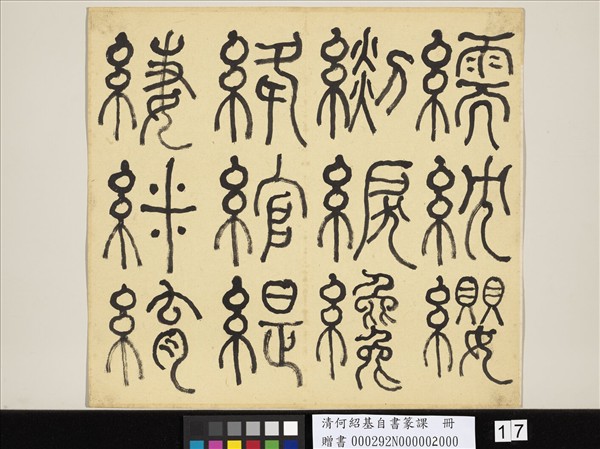 繻紞纓
纔
絳綰緹
緀䋛
清何紹基自書篆課 冊
贈書 000292N000002000
17